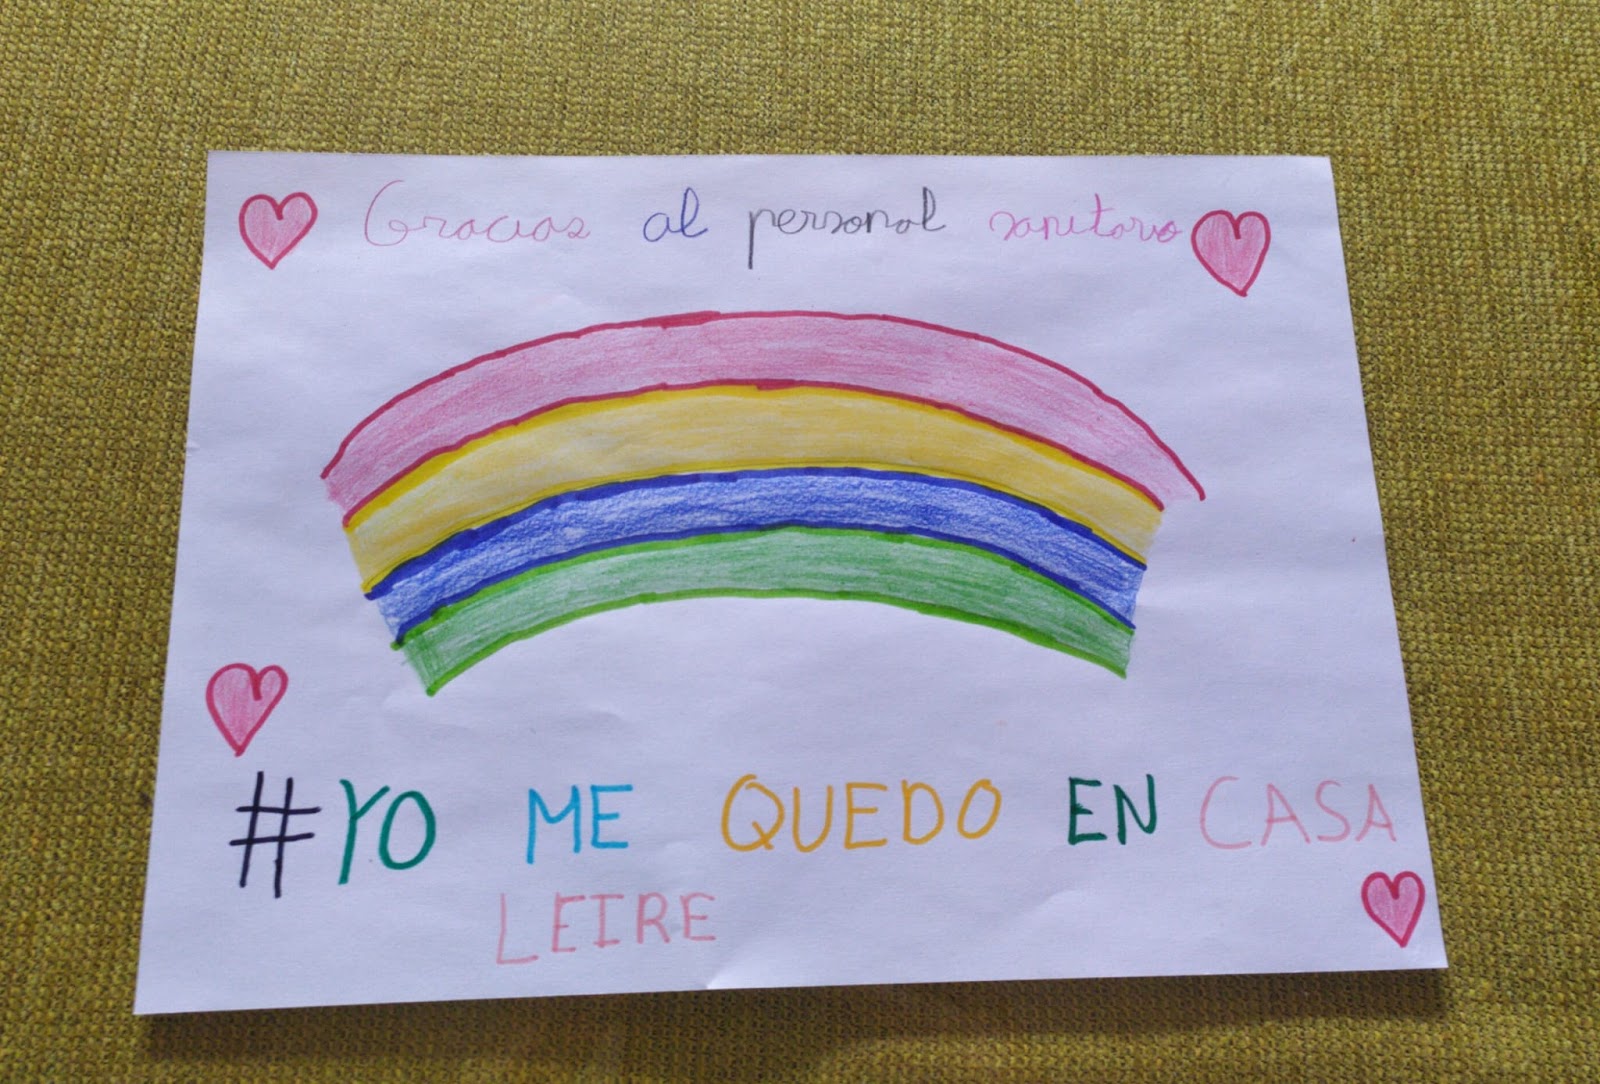 Gracias al personal sanitario
#YO ME QUEDO EN CASA
LEIRE